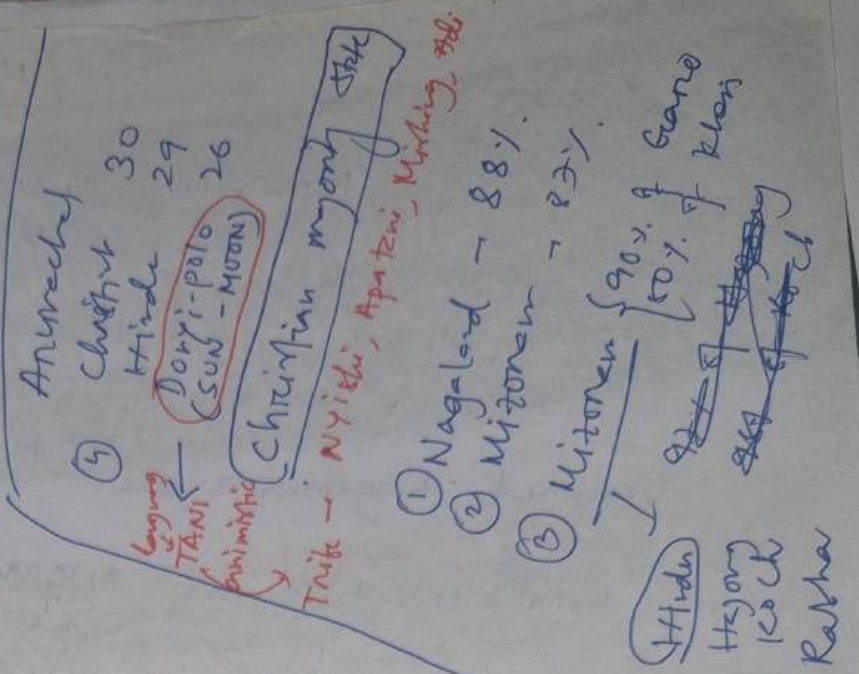 ④ Arunachal
Christian 30
Hindu 29
Donyi-polo 26
(SUN-MOON)
Language
TANI
animistic
Christian majority State
Tribe → Nyishi, Apatani, Mishing, Adi
① Nagaland → 88%
② Mizoram → 87%.
③ Mizoram { 90% of Garo
80% of Khasi
Hindu
Hajong
Koch
Rabha